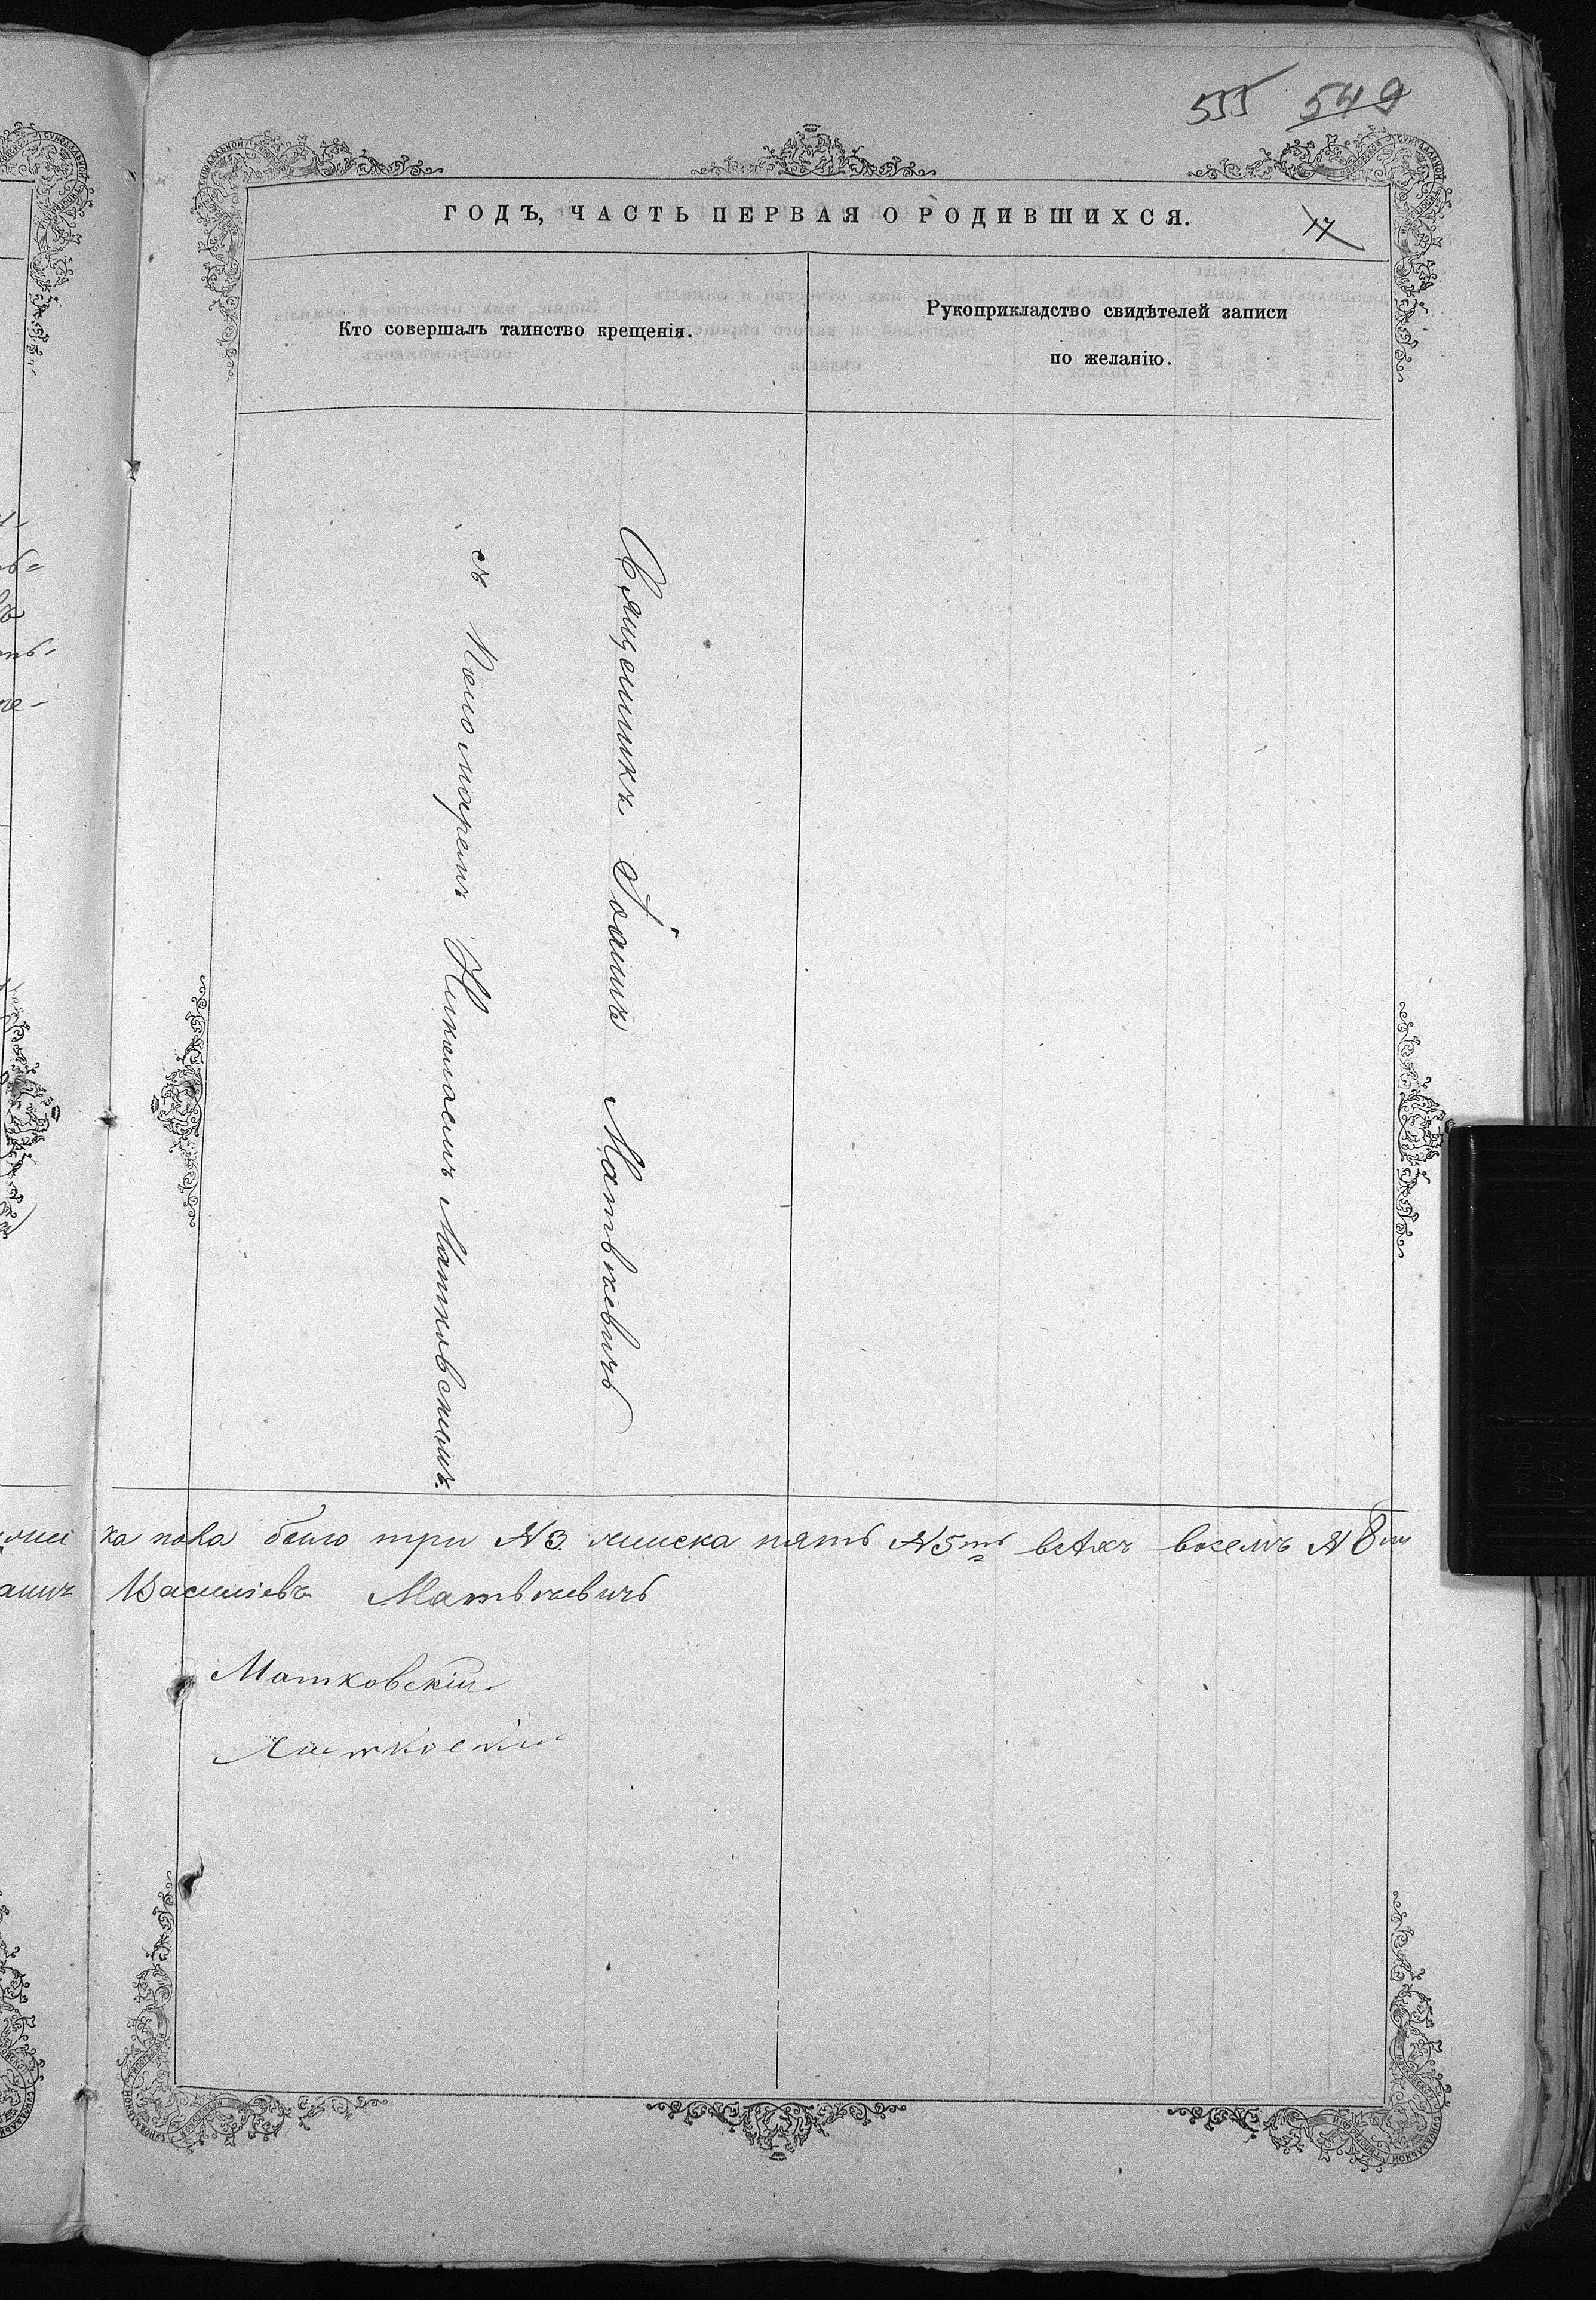 555 549
ГОДЪ, ЧАСТЬ ПЕРВАЯ О РОДИВШИХСЯ.
17
Кто совершалъ таинство крещенія.
Рукоприкладство свидѣтелей записи
по желанію.
Священникъ Іоаннъ Матвѣевичъ
съ Пономаремъ Николаемъ Матковскимъ.
ка пола было три №3. женска пять №5ть всѣхъ восемъ №8м
Василіевъ Матвѣевичъ
Матковскій